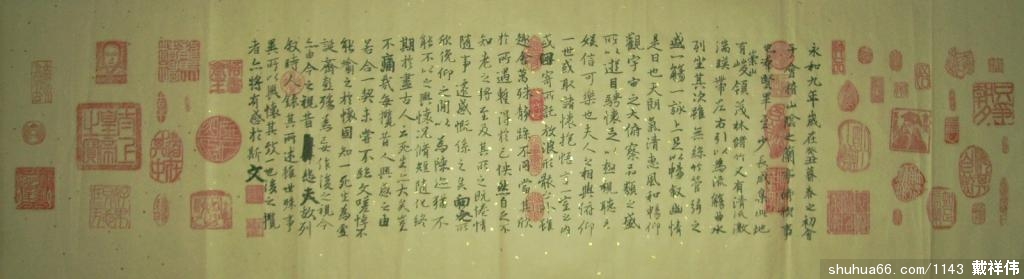 永和九年歲在癸丑暮春之初會
于會稽山陰之蘭亭脩稧事
也羣賢畢至少長咸集此地
有崇山峻領茂林脩竹又有清流激
湍暎帶左右引以為流觴曲水
列坐其次雖無絲竹管弦之
盛一觴一詠亦足以暢敘幽情
是日也天朗氣清惠風和暢仰
觀宇宙之大俯察品類之盛
所以遊目騁懷足以極視聽之
娛信可樂也夫人之相與俯仰
一世或取諸懷抱悟言一室之內
或因寄所託放浪形骸之外雖
趣舍萬殊靜躁不同當其欣
於所遇蹔得於己怏然自足不
知老之將至及其所之既惓情
隨事遷感慨係之矣向之所
欣俛仰之閒以為陳迹猶不
能不以之興懷況脩短隨化終
期於盡古人云死生亦大矣豈
不痛哉每攬昔人興感之由
若合一契未嘗不臨文嗟悼不
能喻之於懷固知一死生為虛
誕齊彭殤為妄作後之視今
亦由今之視昔悲夫故列
敘時人錄其所述雖世殊事
異所以興懷其致一也後之攬
者亦將有感於斯文
shuhua66.com/1143 戴祥伟